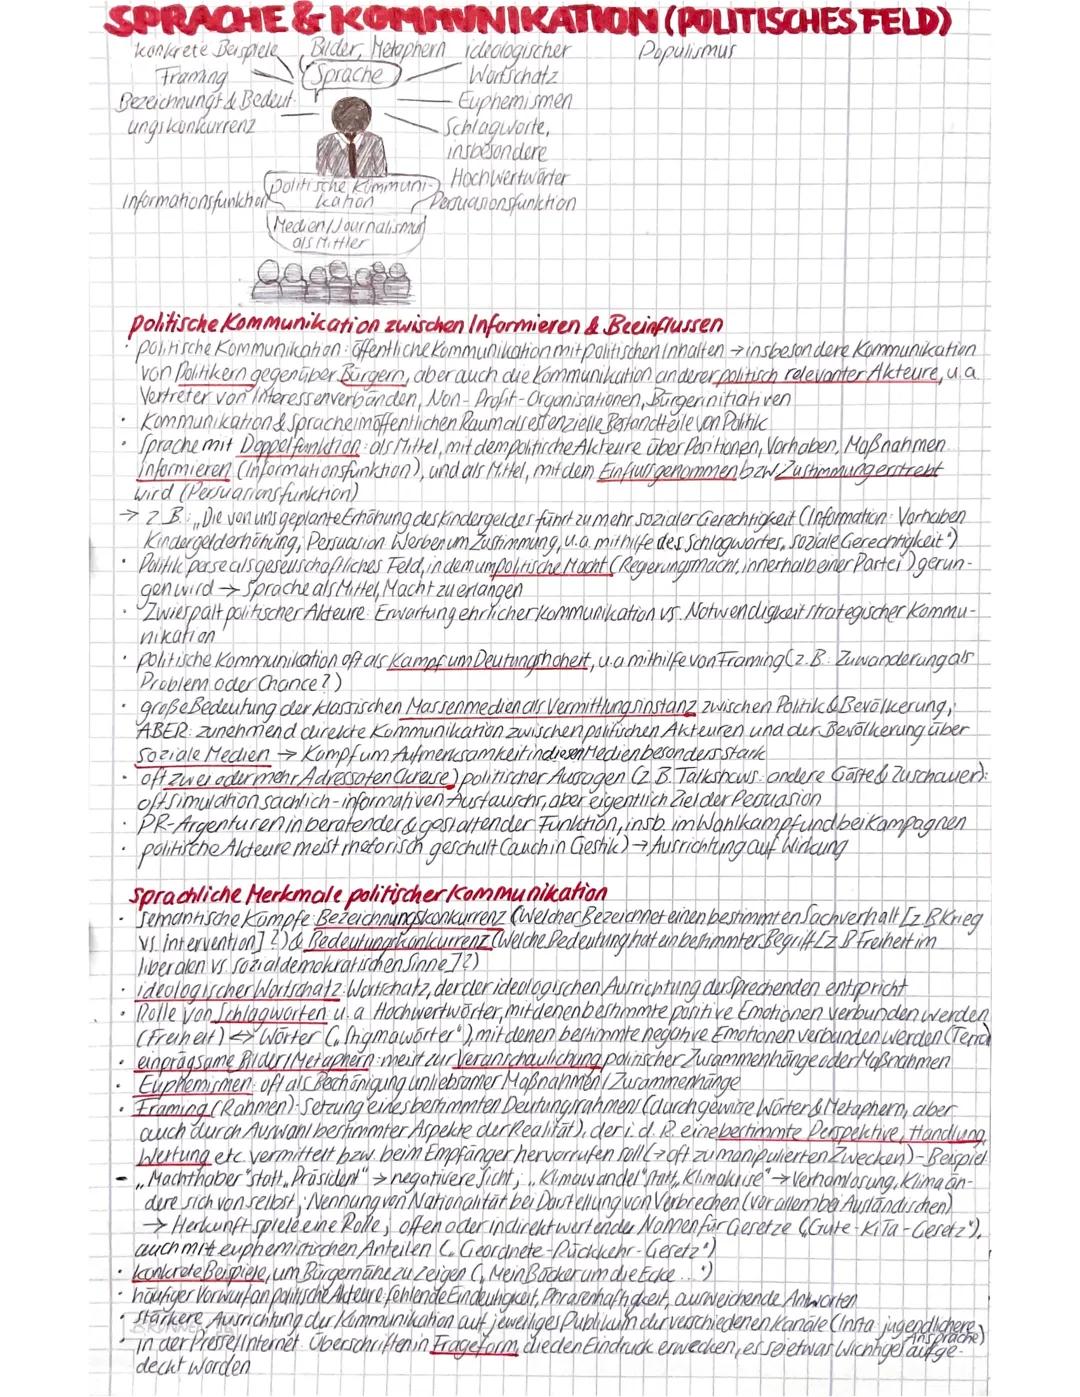 SPRACHE & KOMMUNIKATION (POLITISCHES FELD)
konkrete Beispiele
Bilder, Metaphern
ideologischer
Wortschatz
Populismus
Framing
Sprache
Bezeichnungs & Bedeut-
ungskonkurrenz
Euphemismen
Schlagworte,
insbesondere
Hochwertwörter
Informationsfunktion
politische Kommuni-
kation
Persuasionsfunktion
Medien/Journalismus
als Mittler
politische Kommunikation zwischen Informieren & Beeinflussen
· politische Kommunikation: öffentliche Kommunikation mit politischen Inhalten → insbesondere Kommunikation
von Politikern gegenüber Bürgern, aber auch die Kommunikation anderer politisch relevanter Akteure, u.a.
Vertreter von Interessenverbänden, Non-Profit-Organisationen, Bürgerinitiativen
· Kommunikation & Sprache im öffentlichen Raum als essenzielle Bestandteile von Politik
· Sprache mit Doppelfunktion: als Mittel, mit dem politische Akteure über Positionen, Vorhaben, Maßnahmen
informieren (Informationsfunktion), und als Mittel, mit dem Einfluss genommen bzw Zustimmung erstrebt
wird (Persuasionsfunktion)
→ z.B.: „Die von uns geplante Erhöhung des Kindergeldes führt zu mehr sozialer Gerechtigkeit (Information: Vorhaben
Kindergelderhöhung, Persuasion: Werben um Zustimmung, u.a. mithilfe des Schlagwortes „soziale Gerechtigkeit")
· Politik per se als gesellschaftliches Feld, in dem um politische Macht (Regierungsmacht, innerhalb einer Partei) gerun-
gen wird → Sprache als Mittel, Macht zu erlangen
· Zwiespalt politischer Akteure: Erwartung ehrlicher Kommunikation vs. Notwendigkeit strategischer Kommu-
nikation
· politische Kommunikation oft als Kampf um Deutungshoheit, u.a mithilfe von Framing (z.B: Zuwanderung als
Problem oder Chance?)
· große Bedeutung der klassischen Massenmedien als Vermittlungsinstanz zwischen Politik & Bevölkerung,
ABER: zunehmend direkte Kommunikation zwischen politischen Akteuren und der Bevölkerung über
soziale Medien → Kampf um Aufmerksamkeit in diesen Medien besonders stark
· oft zwei oder mehr Adressaten(kreise) politischer Aussagen (z.B. Talkshows: andere Gäste & Zuschauer):
oft Simulation sachlich-informativen Austauschs, aber eigentlich Ziel der Persuasion
· PR-Argenturen in beratender & gestaltender Funktion, insb. im Wahlkampf und bei Kampagnen
· politische Akteure meist rhetorisch geschult (auch in Gestik) → Ausrichtung auf Wirkung
sprachliche Merkmale politischer Kommunikation
· semantische Kämpfe: Bezeichnungskonkurrenz (Welcher Bezeichnet einen bestimmten Sachverhalt [z.B Krieg
vs. Intervention]?) & Bedeutungskonkurrenz (Welche Bedeutung hat ein bestimmter Begriff [z.B Freiheit im
liberalen vs. sozialdemokratischen Sinne]?)
· ideologischer Wortschatz: Wortschatz, der der ideologischen Ausrichtung der Sprechenden entspricht
· Rolle von Schlagworten: u.a Hochwertwörter, mit denen bestimmte positive Emotionen verbunden werden
(Freiheit) ↔ Wörter („Stigmawörter"), mit denen bestimmte negative Emotionen verbunden werden (Terror)
· einprägsame Bilder/Metaphern: meist zur Veranschaulichung politischer Zusammenhänge oder Maßnahmen
· Euphemismen: oft als Beschönigung unliebsamer Maßnahmen/Zusammenhänge
· Framing (Rahmen): Setzung eines bestimmten Deutungsrahmens (durch gewisse Wörter & Metaphern, aber
auch durch Auswahl bestimmter Aspekte der Realität), der i.d.R. eine bestimmte Perspektive, Handlung,
Wertung etc. vermittelt bzw. beim Empfänger hervorrufen soll (→ oft zu manipulierten Zwecken) - Beispiel:
- „Machthaber" statt „Präsident" → negativere Sicht; „Klimawandel" statt „Klimakrise" → Verharmlosung, Klima än-
dere sich von selbst; Nennung von Nationalität bei Darstellung von Verbrechen (vor allem bei Ausländischen)
→ Herkunft spiele eine Rolle; offen oder indirekt wertende Namen für Gesetze („Gute-KiTa-Gesetz"),
auch mit euphemistischen Anteilen („Geordnete-Rückkehr-Gesetz")
· konkrete Beispiele, um Bürgernähe zu zeigen („Mein Bäcker um die Ecke ...")
· häufiger Vorwurf an politische Akteure: fehlende Eindeutigkeit, Phrasenhaftigkeit, ausweichende Antworten
· stärkere Ausrichtung der Kommunikation auf jeweiliges Publikum der verschiedenen Kanäle (Insta: jugendlichere
Ansprache)
· in der Presse/Internet: Überschriften in Frageform, die den Eindruck erwecken, es sei etwas Wichtiges aufge-
deckt worden